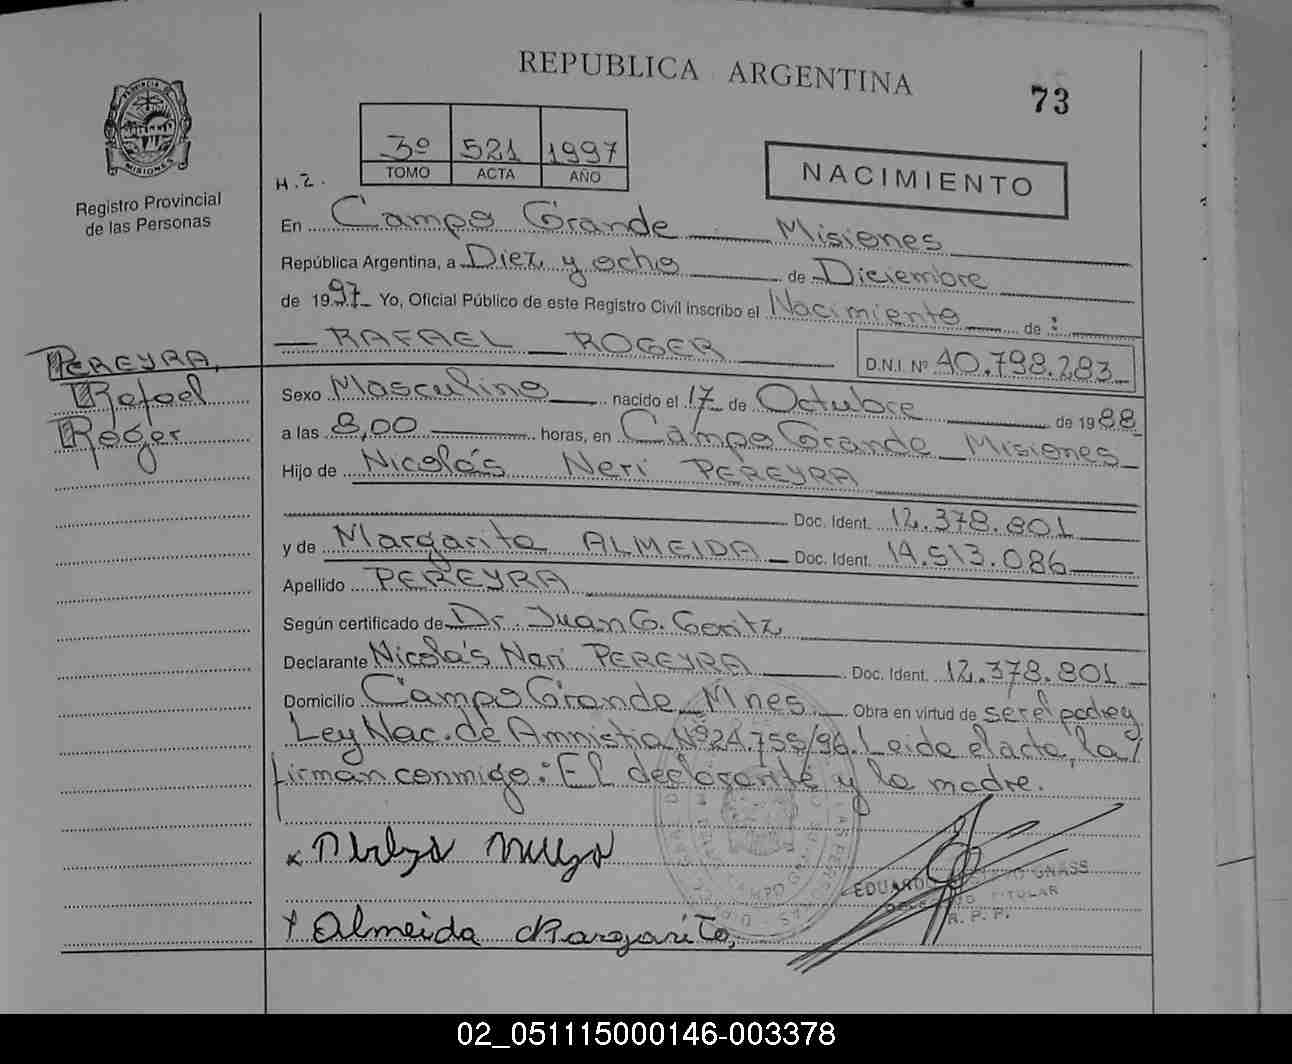 REPUBLICA ARGENTINA
73
3º 521 1997
TOMO ACTA AÑO
H.Z.
NACIMIENTO
PROVINCIA DE MISIONES
Registro Provincial
de las Personas
En Campo Grande Misiones
República Argentina, a Diez y ocho de Diciembre
de 1997 Yo, Oficial Público de este Registro Civil inscribo el Nacimiento de :
RAFAEL ROGER
D.N.I. Nº 40.798.283
PEREYRA,
Rafael
Roger
Sexo Masculino nacido el 17 de Octubre de 1988
a las 8,00 horas, en Campo Grande Misiones
Hijo de Nicolás Neri PEREYRA
Doc. Ident. 12.378.801
y de Margarita ALMEIDA Doc. Ident. 14.513.086
Apellido PEREYRA
Según certificado de Dr. Juan G. Goritz
Declarante Nicolás Neri PEREYRA Doc. Ident. 12.378.801
Domicilio Campo Grande Mnes Obra en virtud de ser el padre y
Ley Nac. de Amnistia Nº 24.755/96. Leida el acta, la
firman conmigo: El declarante y la madre.
EDUARDO GNASS
TITULAR
R. P. P.
x Almeida Margarita,
02_051115000146-003378